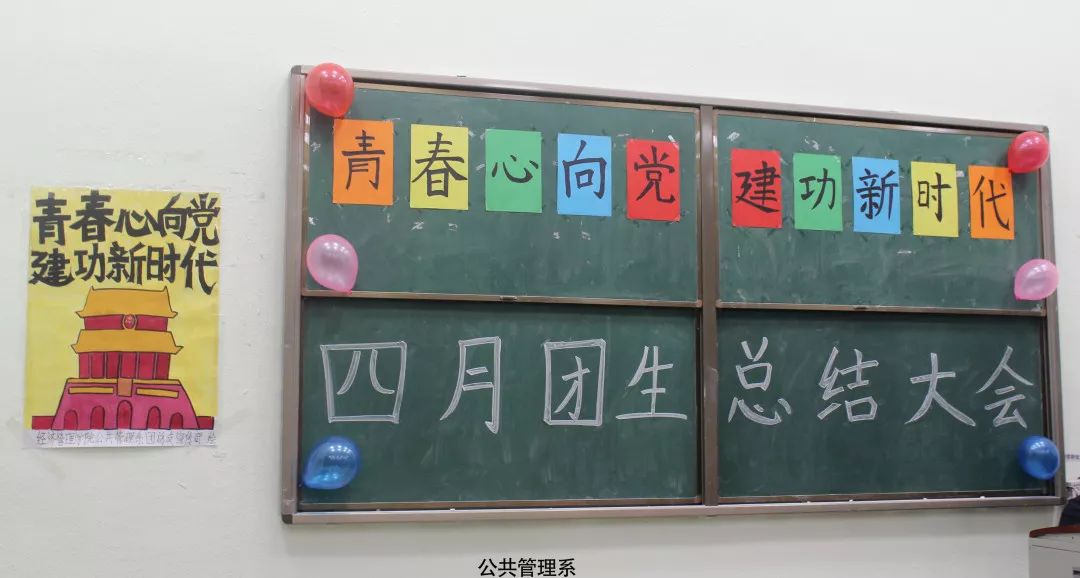 青春心向党
建功新时代
青春心向党 建功新时代
四月团生 总结大会
公共管理系